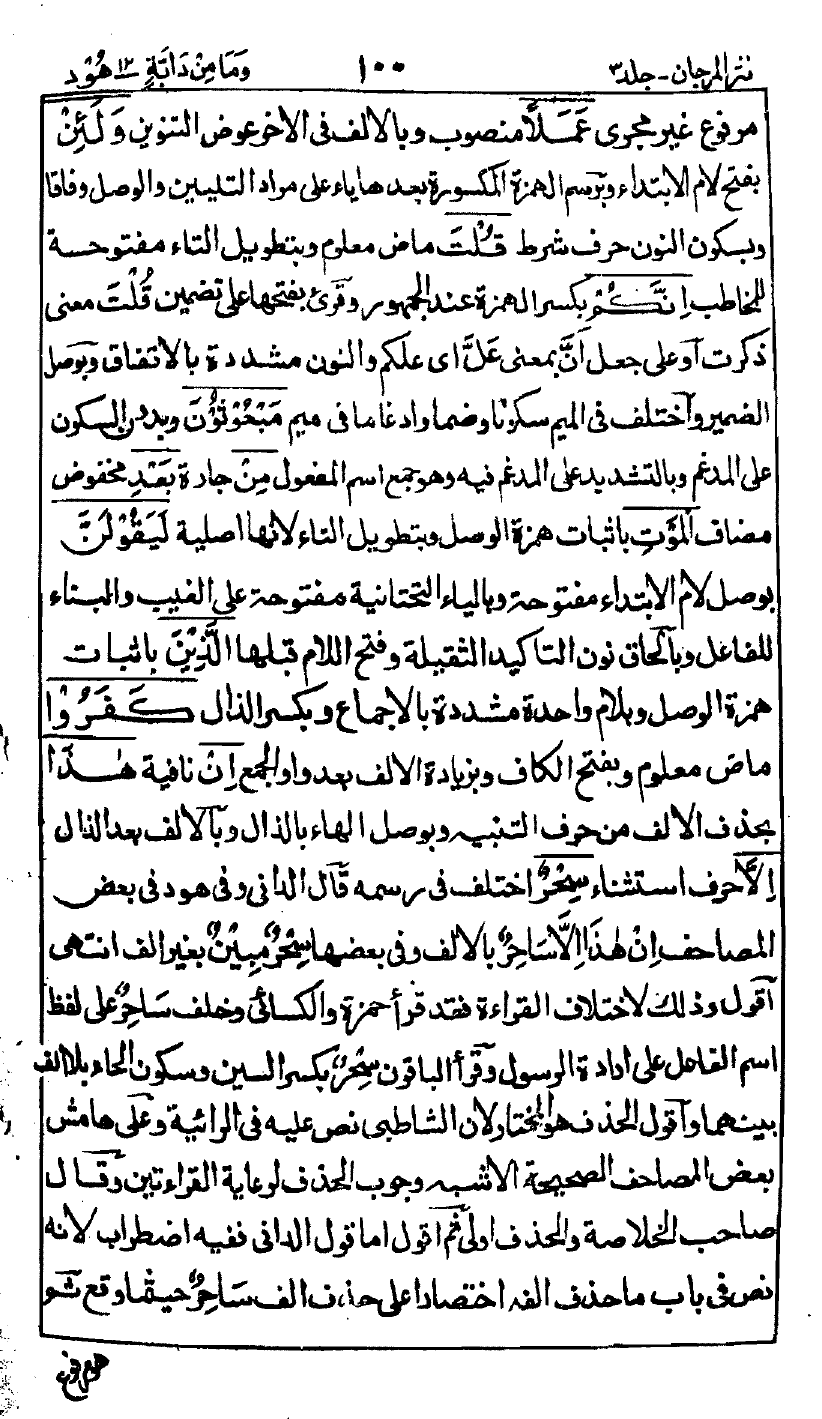 نثر المرجان - جلد ۳ ۱۰۰ وَمَا مِنْ دَابَّةٍ ۱۲ هُوْد
مرفوع غير مجرى عَمَلاً منصوب وبالالف فى الاخر عوض التنوين وَلَئِنْ
بفتح لام الابتداء وبرسم الهمزة المكسورة بعدها ياء على مراد التليين والوصل وفاقا
وبسكون النون حرف شرط قُلْتَ ماض معلوم وبتطويل التاء مفتوحة
للمخاطب اِنَّكُمْ بكسر الهمزة عند الجمهور وقرئ بفتحها على تضمين قُلْتَ معنى
ذكرت آو على جعل اَنَّ بمعنى عَلَّ اى علكم والنون مشددة بالاتفاق وبوصل
الضمير وآختلف فى الميم سكونا وضما وادغاما فى ميم مَبْعُوْثُوْنَ وبدون السكون
على المدغم وبالتشديد على المدغم فيه وهو جمع اسم المفعول مِنْ جارة بَعْدِ مخفوض
مضاف الْمَوْتِ باثبات همزة الوصل وبتطويل التاء لانها اصلية لَيَقُوْلَنَّ
بوصل لام الابتداء مفتوحة وبالياء التحتانية مفتوحة على الغيب والبناء
للفاعل وبآلحاق نون التاكيد الثقيلة وفتح اللام قبلها الَّذِيْنَ باثبات
همزة الوصل وبلام واحدة مشددة بالاجماع وبكسر الذال كَفَرُوْا
ماض معلوم وبفتح الكاف وبزيادة الالف بعد واو الجمع اِنْ نافية هٰذَا
بحذف الالف من حرف التنبيه وبوصل الهاء بالذال وبآلالف بعد الذال
اِلَّا حرف استثناء سِحْرٌ اختلف فى رسمه قال الدانى وفى هود فى بعض
المصاحف اِنْ هٰذَا اِلَّا سَاحِرٌ بالالف وفى بعضها سِحْرٌ مُّبِيْنٌ بغير الف انتهى
آقول وذلك لاختلاف القراءة فقد قرأ حمزة والكسائى وخلف سَاحِرٌ على لفظ
اسم الفاعل على ارادة الرسول وقرأ الباقون سِحْرٌ بكسر السين وسكون الحاء بلا الف
بينهما وآقول الحذف هو المختار لان الشاطبى نص عليه فى الرائية وعلى هامش
بعض المصاحف الصحيحة الاشبه وجوب الحذف لرعاية القراءتين وقال
صاحب الخلاصة والحذف اولى ثم اقول اما قول الدانى ففيه اضطراب لانه
نص فى باب ما حذف الفه اختصارا على حذف الف سَاحِرٌ حيثما وقع ثو